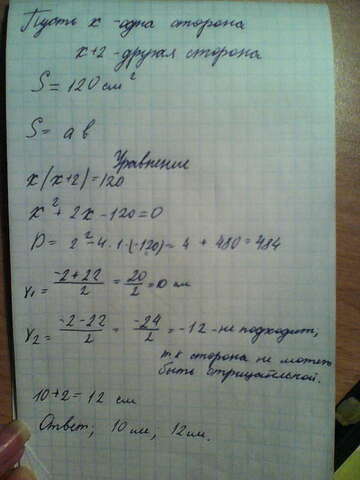 Пусть x - одна сторона
x+2 - другая сторона
S = 120 см²
S = a b
Уравнение
x(x+2)=120
x² + 2x - 120 = 0
D = 2² - 4 · 1 · (-120) = 4 + 480 = 484
x₁ = (-2+22)/2 = 20/2 = 10 см
x₂ = (-2-22)/2 = -24/2 = -12 - не подходит,
т.к сторона не может
быть отрицательной.
10+2 = 12 см
Ответ; 10 см, 12 см.